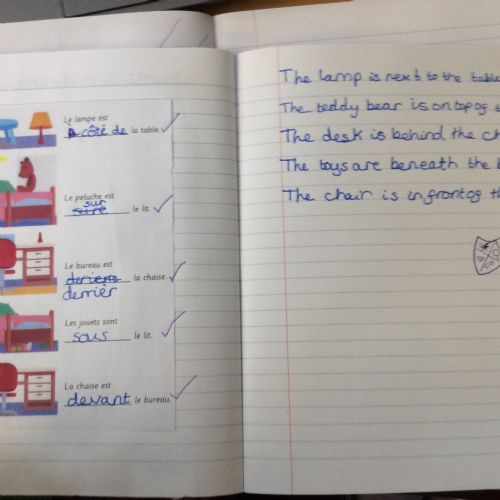 Le lampe est
à côté de la table.
Le peluche est
sur
le lit.
Le bureau est
derriere la chaise.
derrier
Les jouets sont
sous le lit.
La chaise est
devant le bureau.
The lamp is next to the table
The teddy bear is on top of
The desk is behind the
The toys are beneath the
The chair is in front of